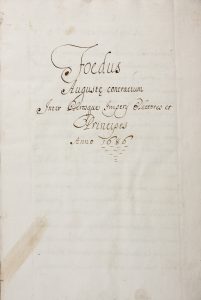 Foedus
Augustę contractum
Inter plerosque Imperij Electores et
Principes
Anno 1686